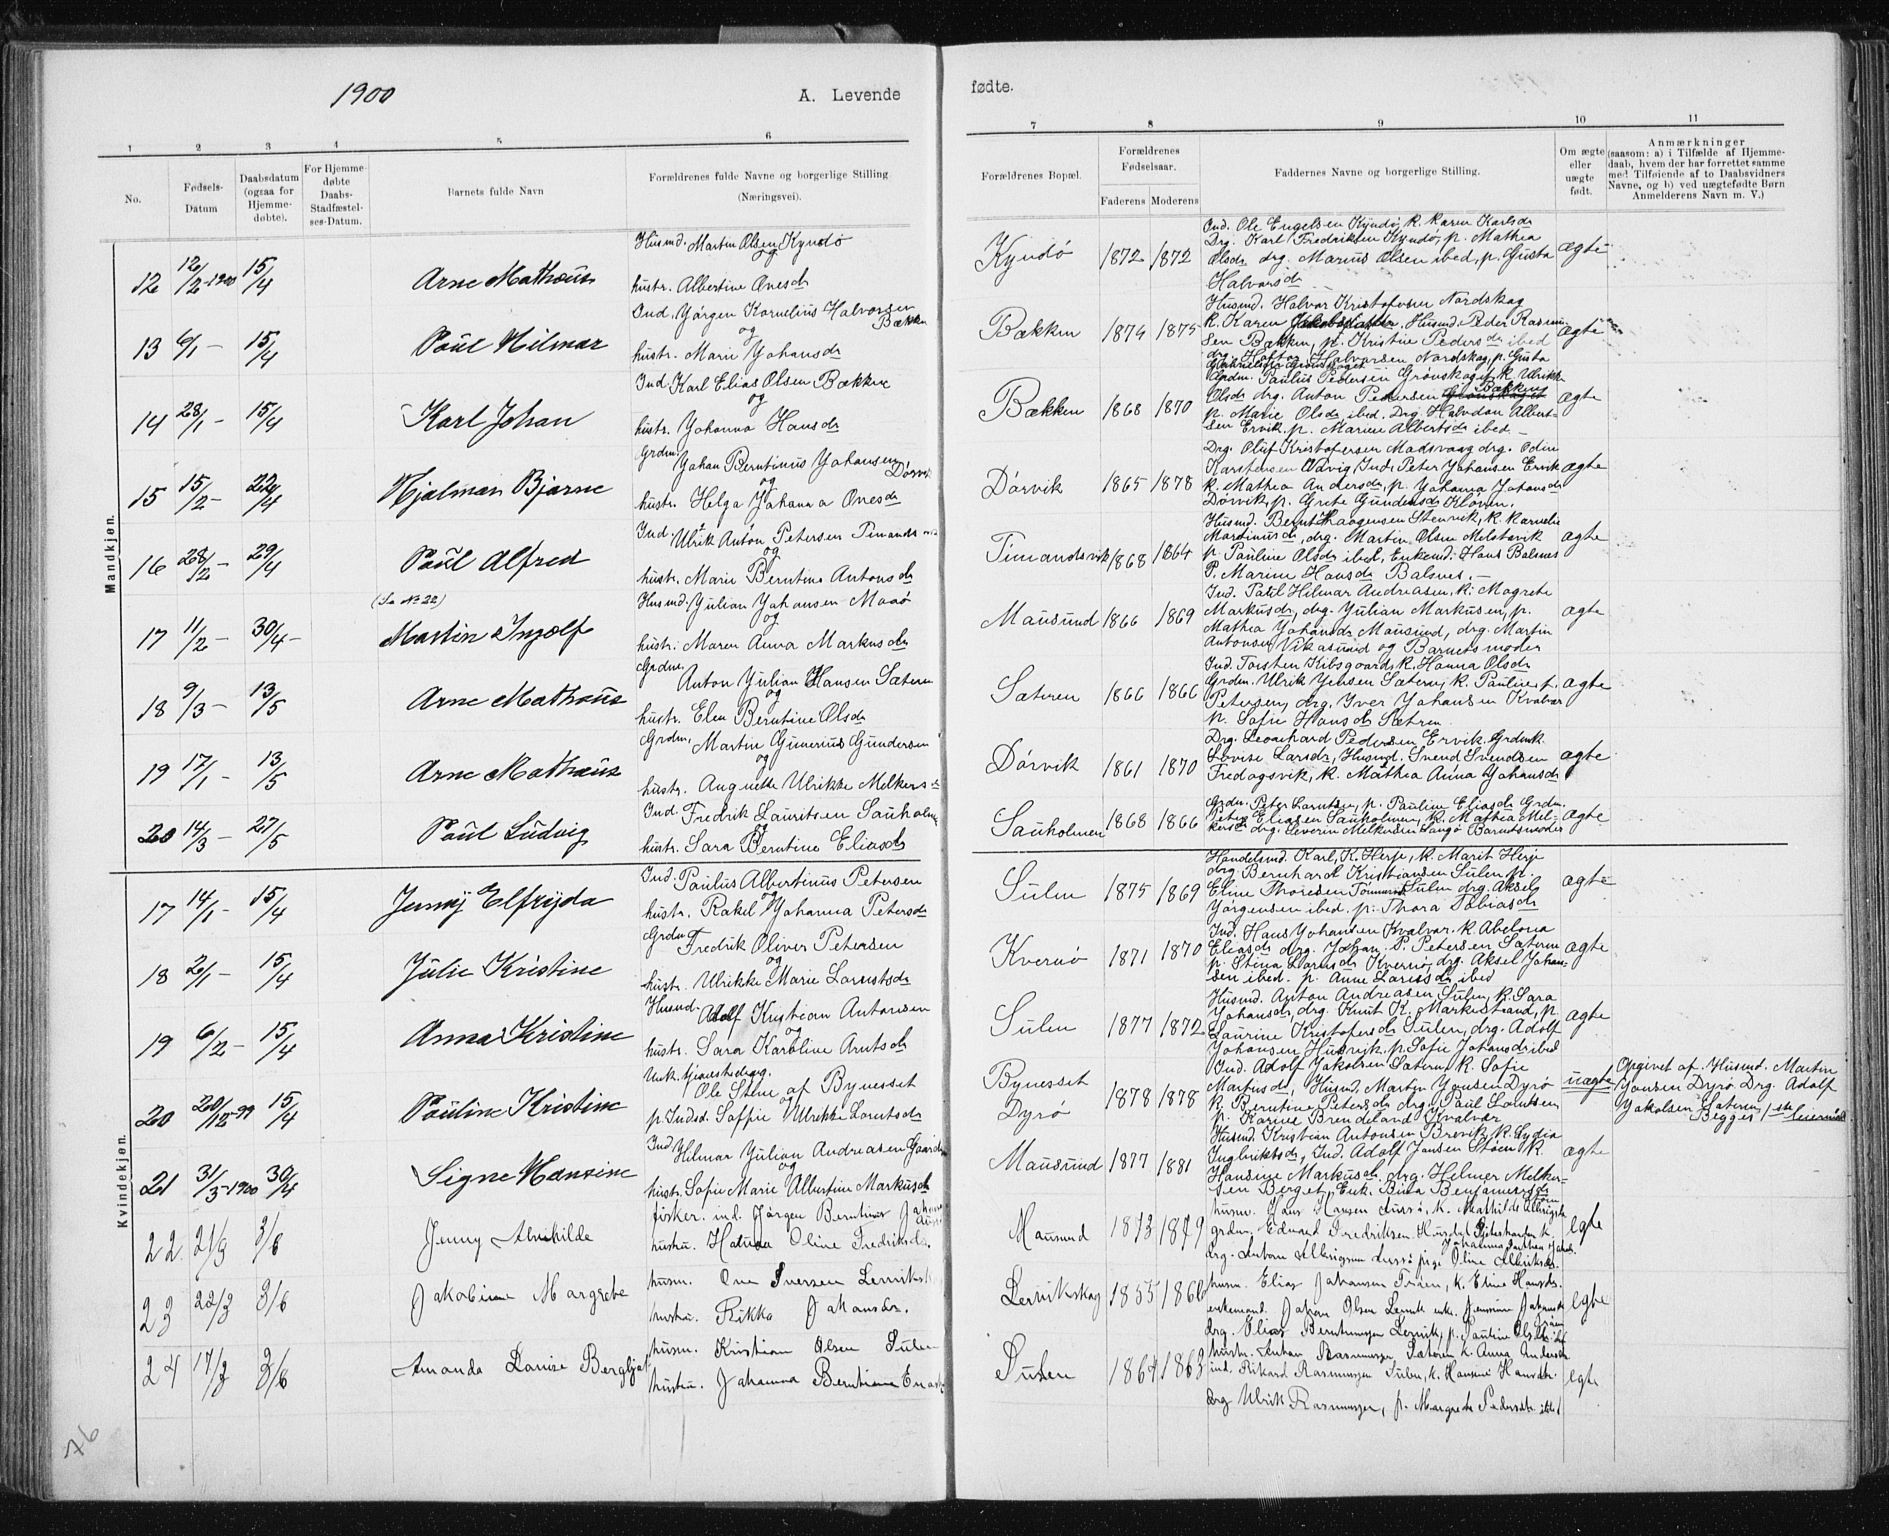 1900
A. Levende
fødte.
1 2 3 4 5 6
7 8 9 10 11
No.
Fødsels-Datum
Daabsdatum (ogsaa for Hjemme-døbte).
For Hjemme-døbte Daabs-Stadfæstel-ses-Datum.
Barnets fulde Navn
Forældrenes fulde Navne og borgerlige Stilling
(Næringsvei).
Forældrenes Bopæl.
Forældrenes Fødselsaar.
Faderens Moderens
Faddernes Navne og borgerlige Stilling.
Om ægte eller uægte født.
Anmærkninger
(saasom: a) i Tilfælde af Hjemme-
daab, hvem der har forrettet samme
med Tilføiende af to Daabsvidners
Navne, og b) ved uægtefødte Børn
Anmelderens Navn m. V.)
Mandkjøn.
12 12/2 1900 15/4 Arne Mathæus
Husmd. Martin Olsen Kyndø
og
hustr. Albertine Ovesdr
Kyndø 1872 1872
Ind. Ole Engelsen Kyndø, k. Karen Karlsdr
Drg. Karl Fredriksen Kyndø, p. Mathea
Olsdr drg. Marius Olsen ibed, p. Gusta
Halvorsdr
ægte
13 6/1 – 15/4 Paul Hilmar
Ind. Jørgen Kornelius Halvorsen
Bækken
og
hustr. Marie Johansdr
Bækken 1874 1875
Husmd. Halvor Kristofersen Nordskag
k. Karen Husmd. Peder Rasmu
sen Bækken, p. Kristine Pedersdr ibed
drg. Halvorsen Nordskag, p. Gusta
ægte
14 28/1 – 15/4 Karl Johan
Ind. Karl Elias Olsen Bækken
og
hustr. Johanna Hansdr
Bækken 1868 1870
Grdm. Paulus Pedersen Grønskaget k. Ulrikke
Olsdr drg. Anton Pedersen Bækken
p. Marie Olsdr ibed. Drg. Halvdan Albert-
sen Ervik. p. Marine Albertsdr ibed –
ægte
15 15/2 – 22/4 Hjalmar Bjarne
Grdm. Johan Berntinus Johansen
Dørvik
og
hustr. Helga Johanna Ovesdr
Dørvik 1865 1878
Drg. Oluf Kristofersen Madsvaag drg. Odin
Karstensen Ind. Peter Johansen Ervik
k. Mathea Andersdr, p. Johanna Johansdr
Dørvik, p. Grete Gundersdr Kløven.
ægte
16 28/12 – 29/4 Paul Alfred
Ind. Ulrik Anton Petersen
og
hustr. Marie Berntine Antonsdr
Timandsvik 1868 1864
Husmd. Bernt Haagensen Stenvik, k. Karnelie
Martinusdr, drg. Martin Olsen Melstevik
p. Pauline Olsdr ibed, Enkemd. Hans Balsnes
P. Marine Hansdr Balsnes, –
ægte
(Se No 22)
17 11/2 – 30/4 – Martin Ingolf
Husmd. Julian Johansen Maaø
og
hustr. Maren Anna Markusdr
Mausund 1866 1869
Ind. Paul Hilmar Andreasen, k. Magrete
Markusdr, drg. Julian Markusen, p.
Mathea Johansdr Mausund, drg. Martin
Antonsen Vikasund og Barnets moder
ægte
18 9/3 – 13/5 Arne Mathæus
Grdm. Anton Julian Hansen Sæteren
og
hustr. Elen Berntine Olsdr
Sæteren 1866 1866
Ind. Torsten Kibsgaard, k. Hanna Olsdr
Grdm. Ulrik Jensen Sætern, k. Pauline, p.
Petersen, drg. Iver Johansen Kvalvær
p. Sofie Hansdr Sætren
ægte
19 17/1 – 13/5 Arne Mathæus
Grdm. Martin Gunerius Gundersen
og
hustr. Augnette Ulrikke Melkersdr
Dørvik 1861 1870
Drg. Leonhard Pedersen Ervik. Grdmk.
Lovise Larsdr, Husmd. Svend Svendsen
Fredagsvik, k. Mathea Anna Johansdr
ægte
20 14/3 – 27/5 Paul Ludvig
Ind. Fredrik Lauritsen Sauholm
og
hustr. Sara Berntine Eliasdr
Sauholmen 1868 1866
Grdm. Peter Larntsen, p. Pauline Eliasdr Grdm.
Peter Eliasen Sauholmen, k. Mathea Mel-
kersdr drg. Severin Melkersen Barnetsmoder
ægte
Kvindekjøn.
17 14/1 – 15/4 Jenny Elfrijda
Ind. Paulus Albertinus Petersen
og
hustr. Rakel Johanna Petersdr
Sulen 1875 1869
Handelsmd. Karl K. Herje, k. Marit Herje
drg Bernhard Kristiansen Sulen p.
Eline Thoresen Sulen drg. Aksel
Jørgensen ibed. p. Thora Tobiasdr
ægte
18 2/1 – 15/4 Julie Kristine
Grdm. Fredrik Oliver Petersen
og
hustr. Ulrikke Marie Larntsdr
Kvernø 1871 1870
Ind. Hans Johansen Kvalvær. k. Abelona
Eliasdr drg. Johan P. Petersen Sætern
p. Stina Larnsdr Kvernø, drg. Aksel Johan-
sen ibed. p. Anne Larssdr ibed
ægte
19 6/2 – 15/4 Anna Kristine
Husmd. Adolf Kristian Antonsen
og
hustr. Sara Karoline Arntsdr
Sulen 1877 1872
Husmd. Anton Andreasen Sulen, k. Sara
Johansdr, drg. Knut K. Markestrand, p.
Laurine Kristofersdr Sulen, drg. Adolf
Johansen Husvik p. Sofie Johansdr ibed
ægte
20 20/12 – 99 15/4 Pauline Kristine
Unk.
Ole Stene af Bynesset
og
p. Indsd. Soffie Ulrikke Larntsdr
Bynesset
Dyrø 1878 1878
Ind. Adolf Jakobsen Sætern k. Sofie
Martinsdr, Husmd. Martin Jonsen Dyrø
k. Berntine Petersdr drg. Paul Larntsen
p. Karine Brendeland Kvalvær
uægte
Opgivet af Husmd. Martin
Jonsen Dyrø Drg. Adolf
Jakobsen Sateren
Begges 1ste leiermaal
21 31/3 – 1900 30/4 Signe Hansine
Ind. Hilmar Julian Andreasen
og
hustr. Sofie Marie Albertine Markusdr
Mausund 1877 1881
Husmd. Kristian Antonsen Brevik, k. Lydia
Ingbriktsdr, Ind. Adolf Jensen Støen k.
Hansine Markusdr, drg. Helmer Melker-
sen Berget, Enk. Bina Benjaminsdr
ægte
22. 21/3 3/6 Jenny Alvhilde
fisker. ind. Jørgen Berntinus
hustru. Oline Fredriksdr.
Mausund 1873 1879
husm. Hans Hansen k. Mathilde
grdm. Edvard Fredriksen
drg. Anton pige Oline
egte
23 22/3 3/6 Jakobine Margrete
husm. Ove Iversen
hustru. Rikka Johansdr.
Lervikskag 1855 1860
husm. Elias Johansen k. Eline Hansdr.
enkemand. Johan Olsen Lervik enke.
drg. Elias Berntinussen Lervik, p. Pauline
egte
24 17/3 3/6 Amanda Louise Bergljot
husm. Kristian Olsen Sulen
hustru. Johanna Berntine
Sulen 1864 1863
husm. Johan Rasmussen Sætern k. Anna Andersdr
ind. Rikard Rasmussen Sulen, k. Hansine Hansdtr.
drg Ulrik Rasmussen, p. Margrete Pedersdr. ibd.
egte
76